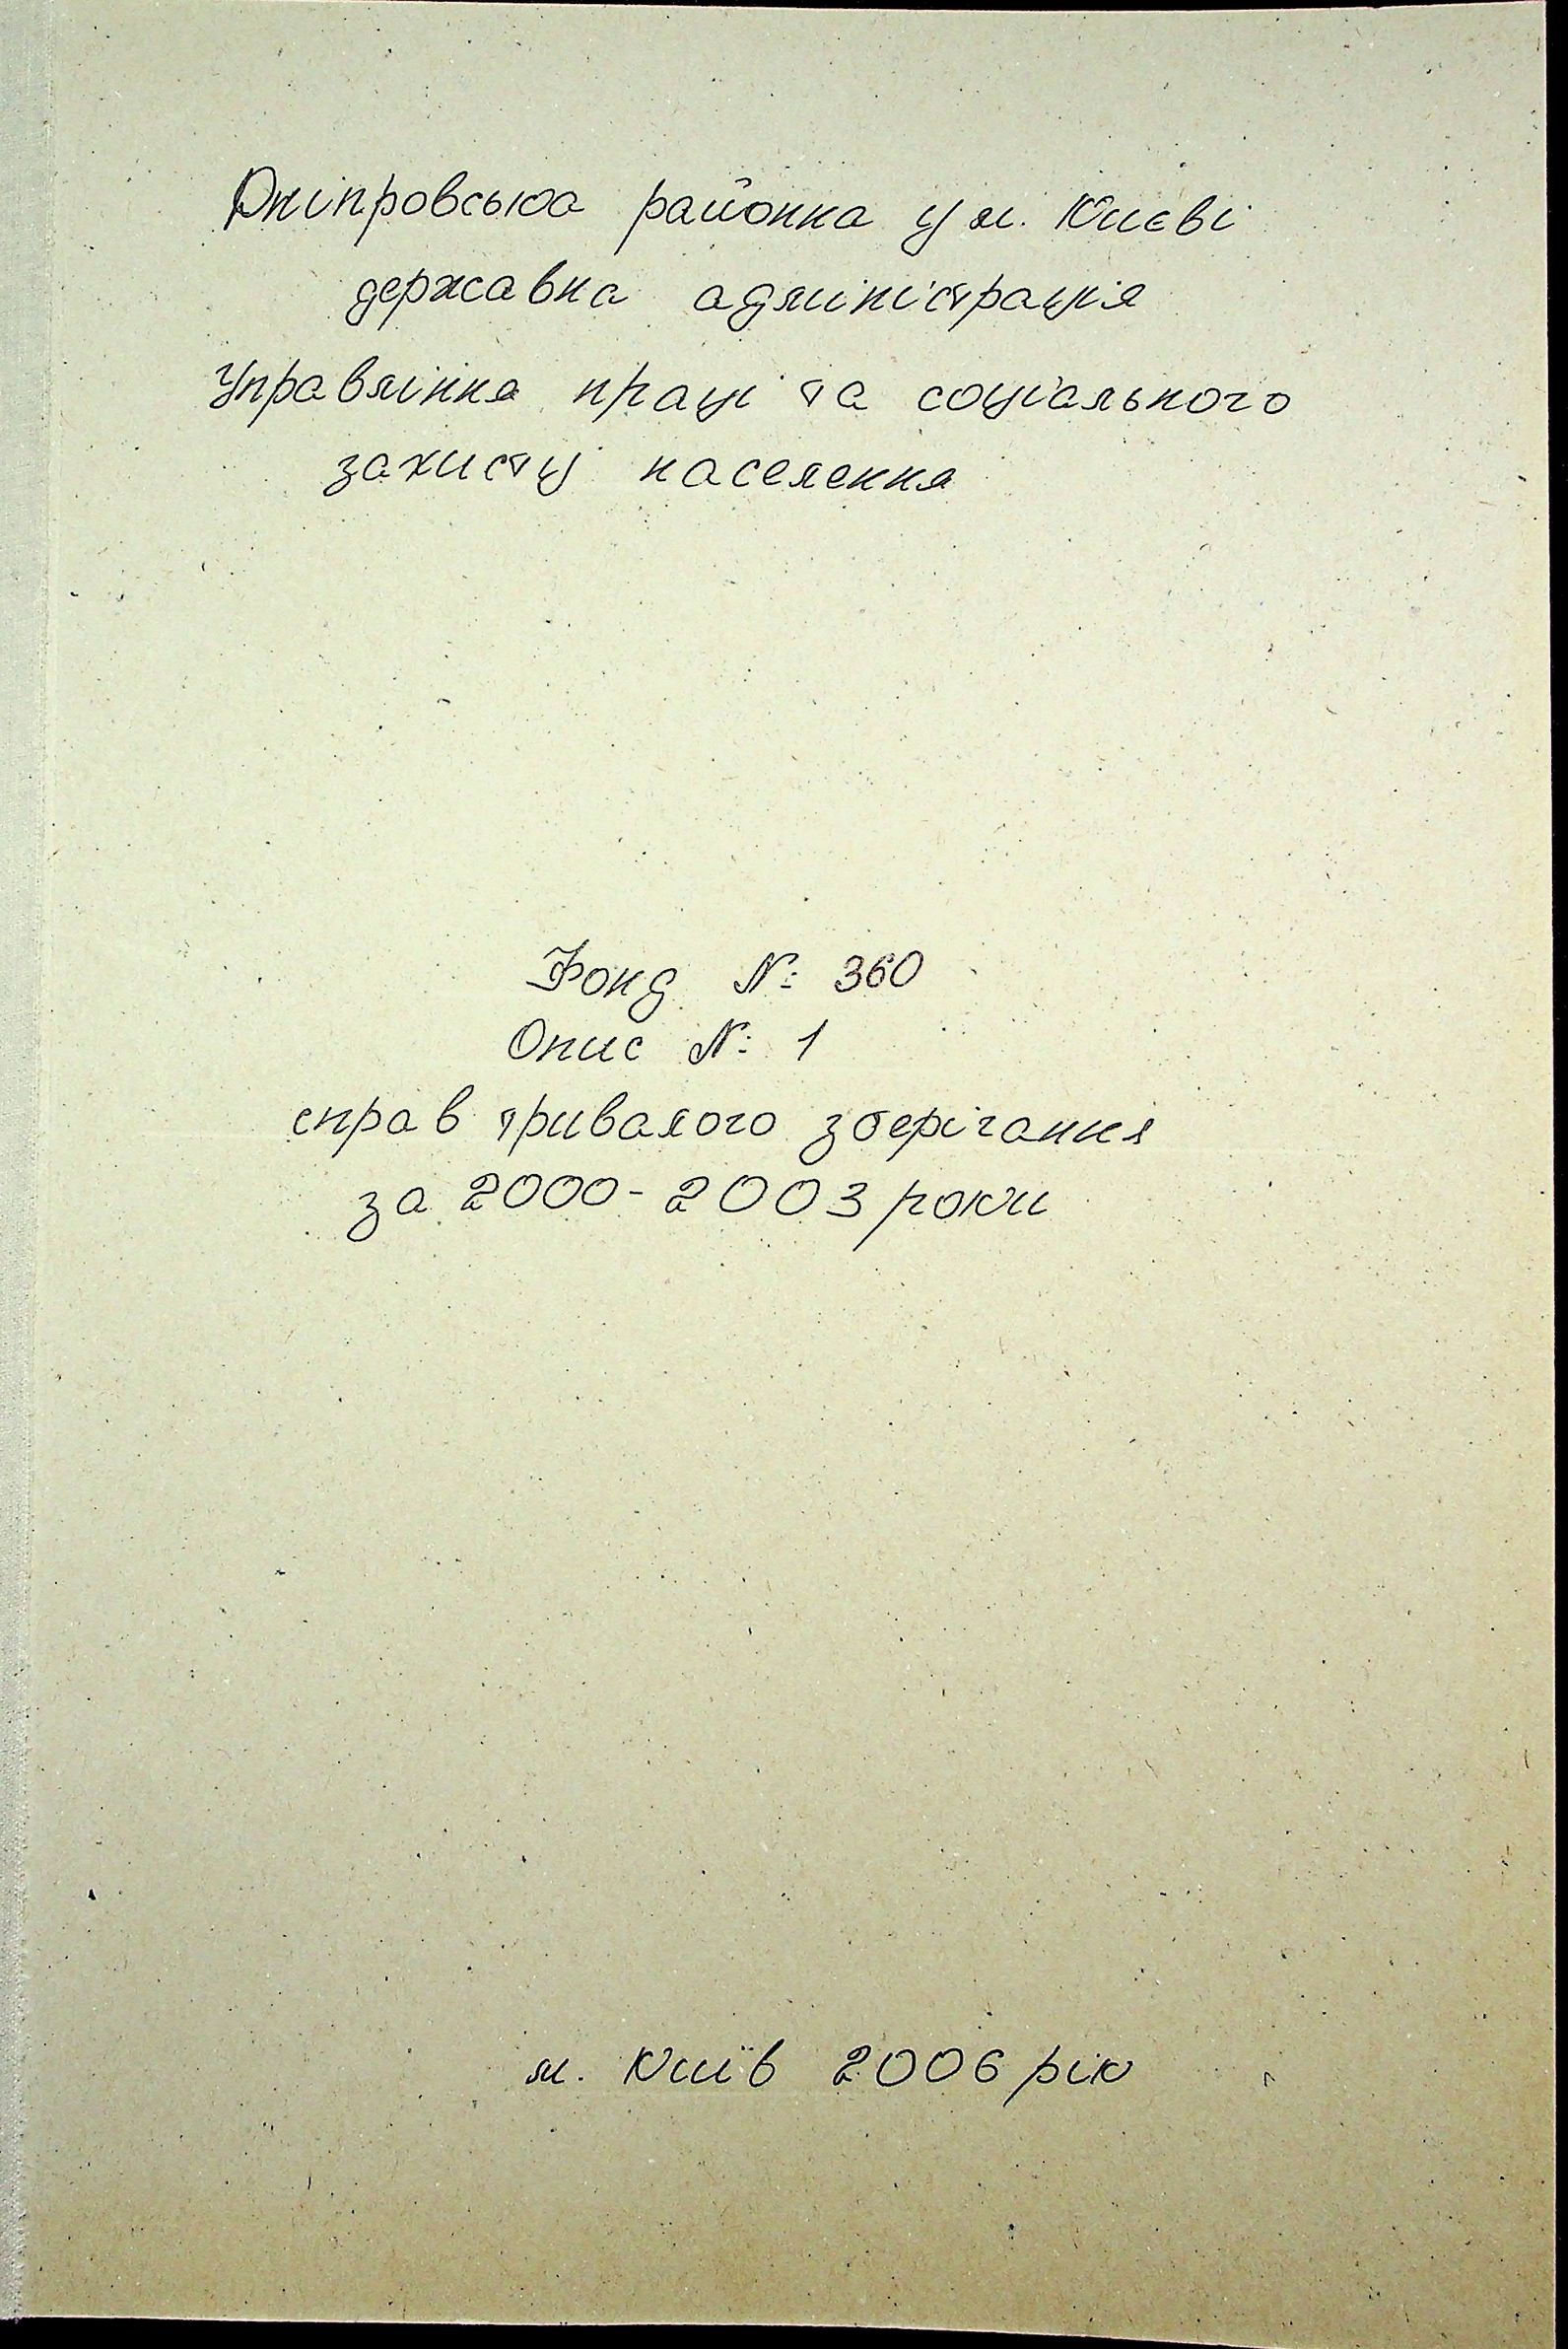 Дніпровська районна у м. Києві
державна адміністрація
Управління праці та соціального
захисту населення
Фонд № 360
Опис № 1
справ тривалого зберігання
за 2000-2003 роки
м. Київ 2006 рік